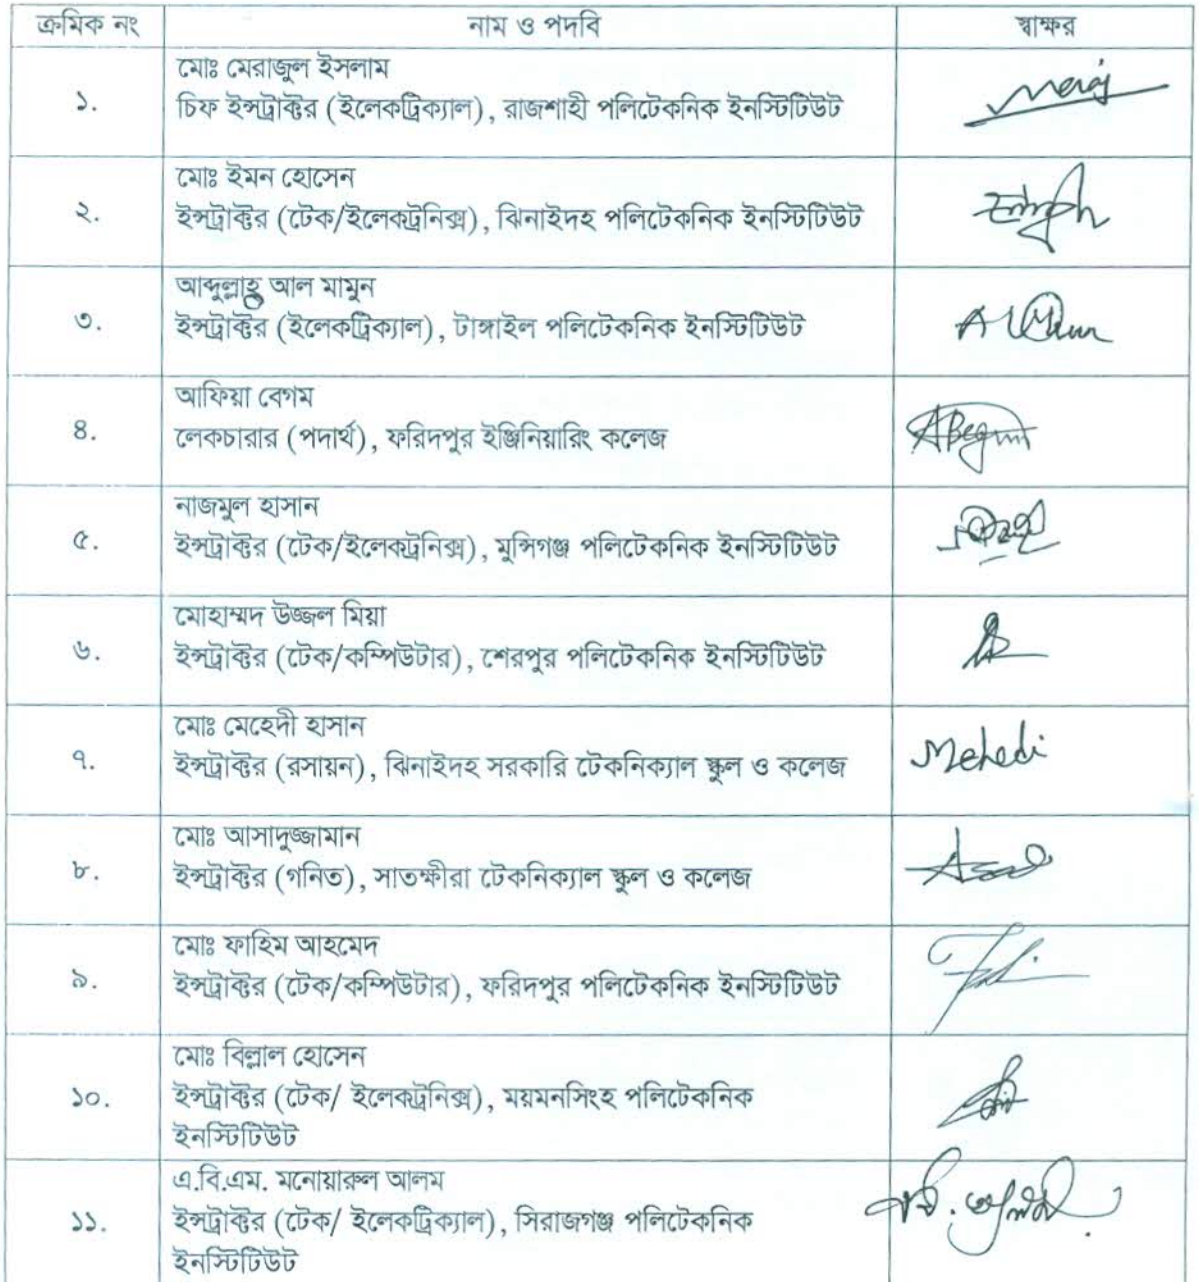 ক্রমিক নং নাম ও পদবি স্বাক্ষর
মোঃ মেরাজুল ইসলাম
১. চিফ ইন্সট্রাক্টর (ইলেকট্রিক্যাল), রাজশাহী পলিটেকনিক ইনস্টিটিউট Meraj
মোঃ ইমন হোসেন
২. ইন্সট্রাক্টর (টেক/ইলেকট্রনিক্স), ঝিনাইদহ পলিটেকনিক ইনস্টিটিউট
আব্দুল্লাহ আল মামুন
৩. ইন্সট্রাক্টর (ইলেকট্রিক্যাল), টাঙ্গাইল পলিটেকনিক ইনস্টিটিউট
আফিয়া বেগম
৪. লেকচারার (পদার্থ), ফরিদপুর ইঞ্জিনিয়ারিং কলেজ ABegum
নাজমুল হাসান
৫. ইন্সট্রাক্টর (টেক/ইলেকট্রনিক্স), মুন্সিগঞ্জ পলিটেকনিক ইনস্টিটিউট
মোহাম্মদ উজ্জল মিয়া
৬. ইন্সট্রাক্টর (টেক/কম্পিউটার), শেরপুর পলিটেকনিক ইনস্টিটিউট
মোঃ মেহেদী হাসান
৭. ইন্সট্রাক্টর (রসায়ন), ঝিনাইদহ সরকারি টেকনিক্যাল স্কুল ও কলেজ Mehedi
মোঃ আসাদুজ্জামান
৮. ইন্সট্রাক্টর (গনিত), সাতক্ষীরা টেকনিক্যাল স্কুল ও কলেজ
মোঃ ফাহিম আহমেদ
৯. ইন্সট্রাক্টর (টেক/কম্পিউটার), ফরিদপুর পলিটেকনিক ইনস্টিটিউট
মোঃ বিল্লাল হোসেন
১০. ইন্সট্রাক্টর (টেক/ ইলেকট্রনিক্স), ময়মনসিংহ পলিটেকনিক
ইনস্টিটিউট
এ.বি.এম. মনোয়ারুল আলম
১১. ইন্সট্রাক্টর (টেক/ ইলেকট্রিক্যাল), সিরাজগঞ্জ পলিটেকনিক
ইনস্টিটিউট